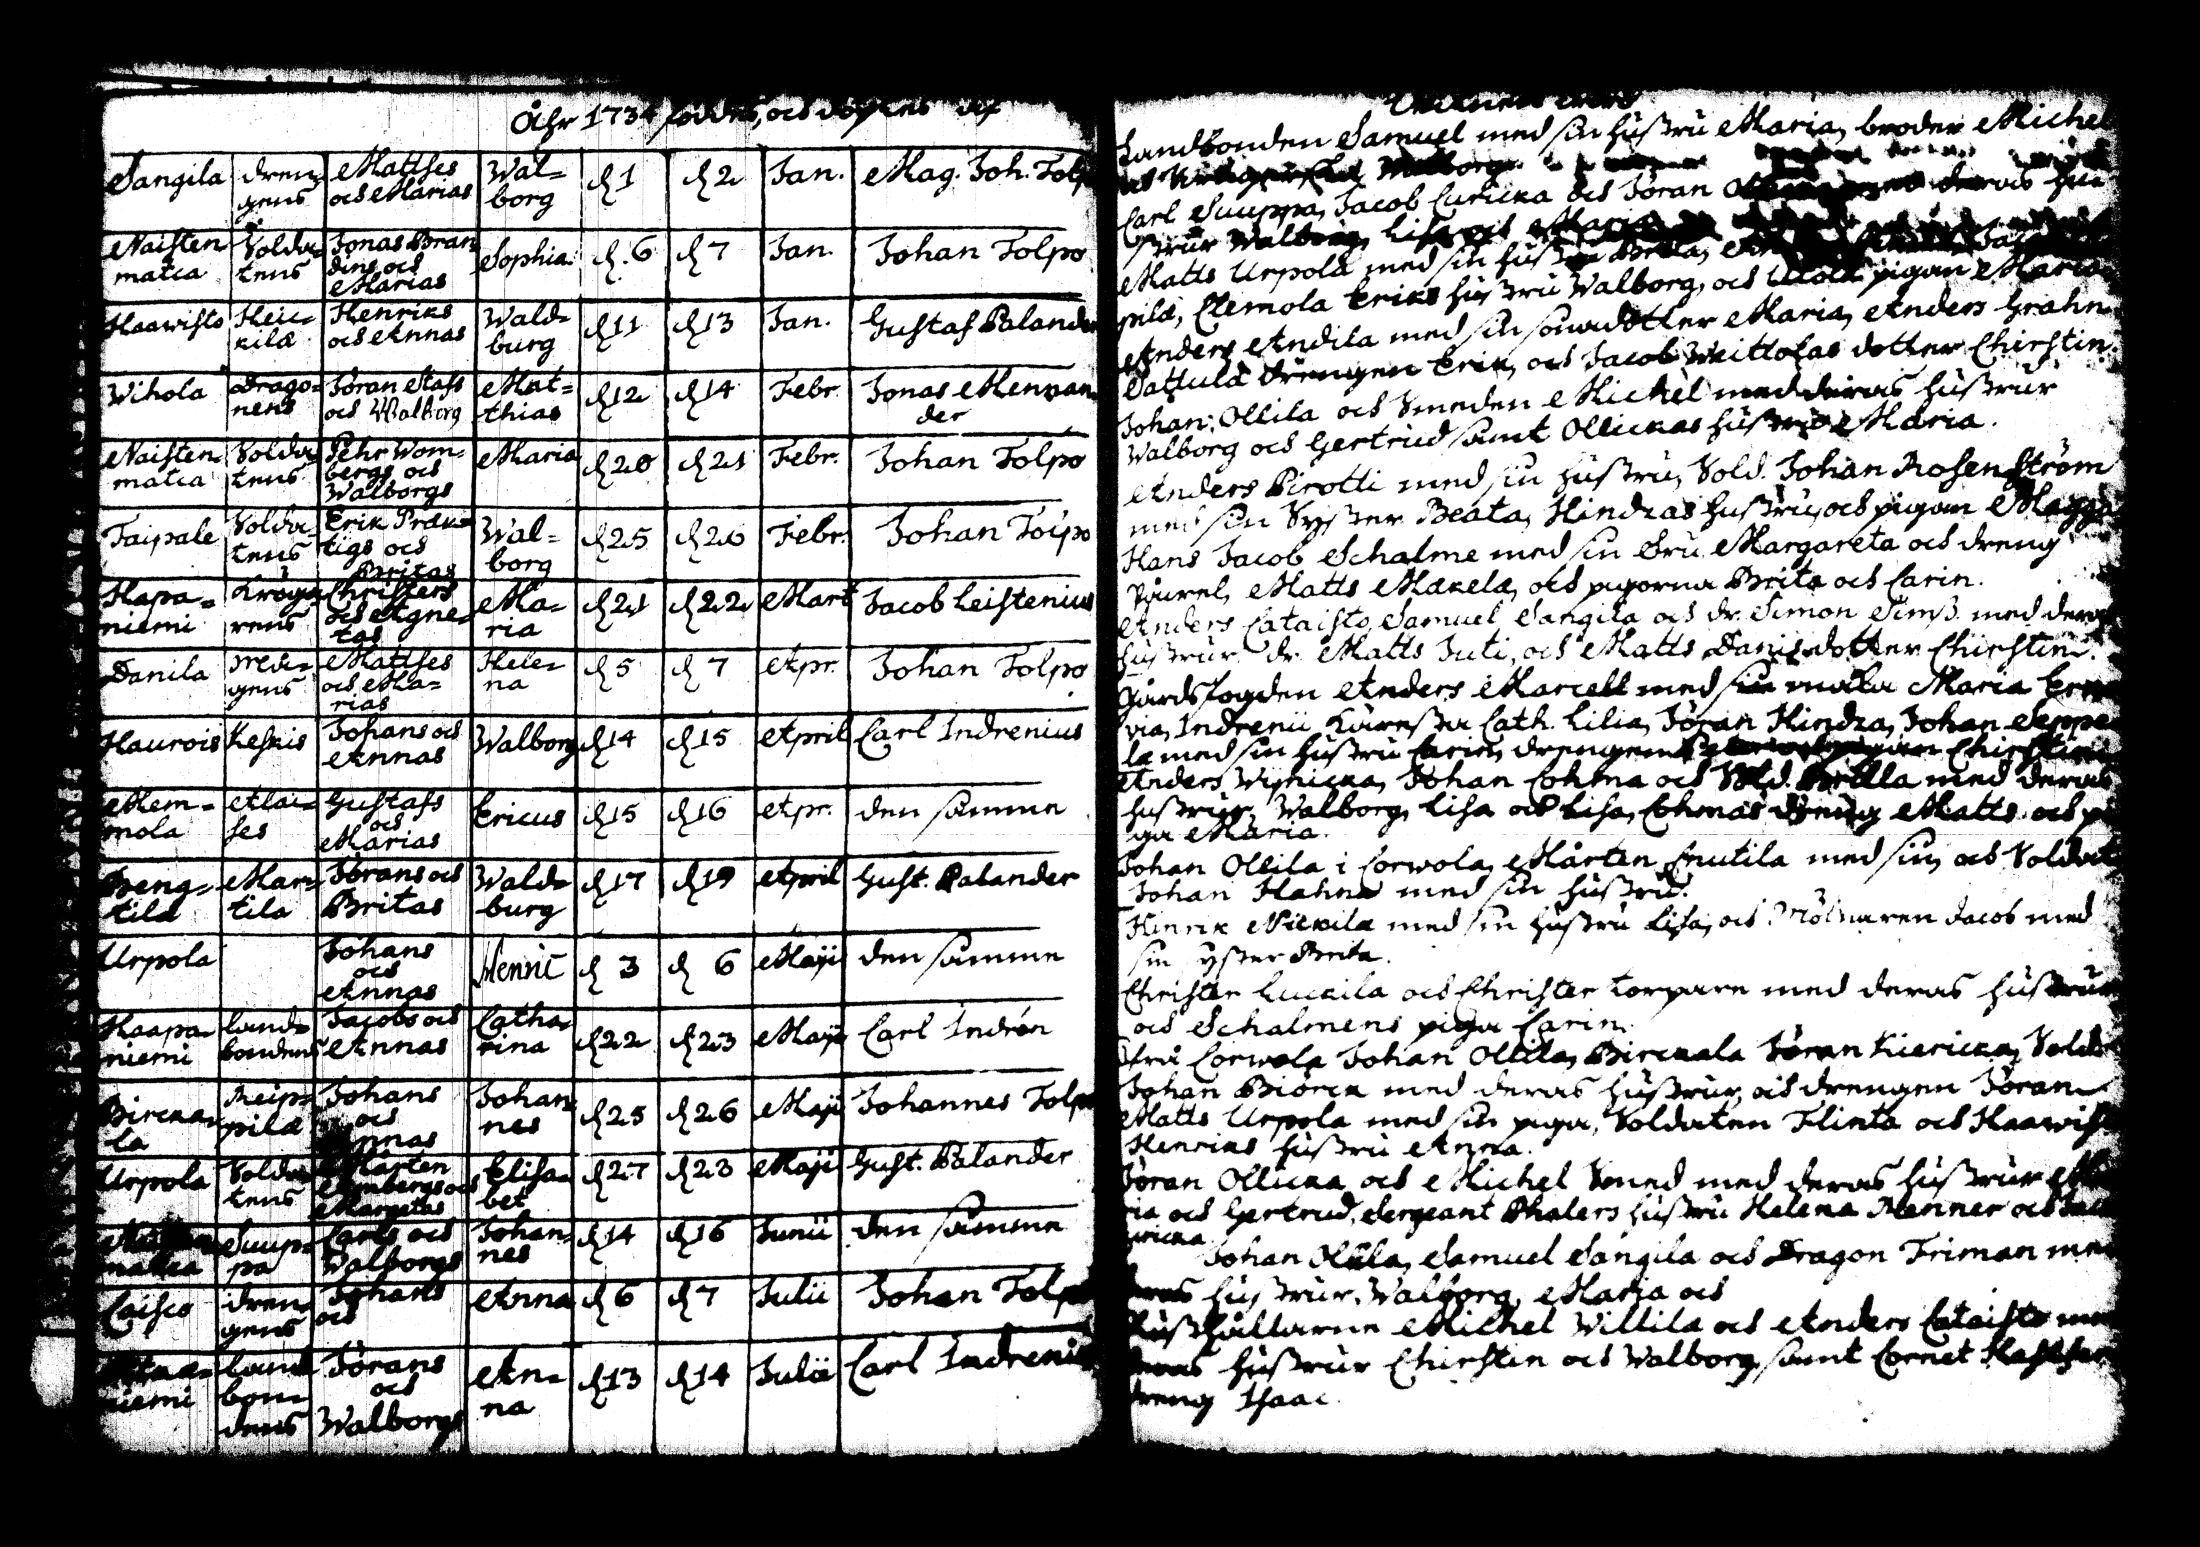 Åhr 1734 föddes, och döptes af
Sangila drengens Mattses och Marias Walborg d 1 d 2 Jan. Mag. Joh. Tolp
Naistenmatca Soldatens Jonas Brandins och Marias Sophia d. 6 d 7 Jan. Johan Tolpo
Haawisto Heickilä Henriks och Annas Waldburg d 11 d 13 Jan. Gustaf Palander
Wihola Dragonens Jöran Stafs och Walborg Matthias d 12 d 14 Febr. Jonas Mennander
Naistenmatca Soldatens Pehr Wombergs och Walborgs Maria d 20 d 21 Febr. Johan Tolpo
Taipale Soldatens Erik Præktigs och Britas Walborg d 25 d 26 Febr. Johan Tolpo
Hapaniemi Krögarens Christers och Agnetas Maria d 21 d 22 Mart Jacob Leistenius
Danila drengens Mattses och Marias Helena d 5 d 7 Apr. Johan Tolpo
Haurois Keskis Johans och Annas Walborg d 14 d 15 April Carl Indrenius
Memola Alaises Gustafs och Marias Ericus d 15 d 16 Apr. den samme
Bengtilä Martila Jörans och Britas Waldburg d 17 d 19 April Gust. Palander
Urpola Johans och Annas Henric d 3 d 6 Maji den samme
Haapaniemi Landbondens Jacobs och Annas Catharina d 22 d 23 Maji Carl Indrén
Birckala Reippilä Johans och Annas Johannes d 25 d 26 Maji Johannes Tolpo
Urpola Soldatens Mårten och Margetas Elisabet d 27 d 28 Maji Gust. Palander
Suuppa Carls och Walborgs Johannes d 14 d 16 Junii den samme
Caisco drengens Johans och Anna d 6 d 7 Julii Johan Tolpo
niemi landbondens Jörans och Walborgs Anna d 13 d 14 Julii Carl Indrenius
Landbonden Samuel med sin hustru Maria, broder Michel
Carl Suuppa, Jacob Curicka och Jöran deras hu
strur Walborg, Lisa och Maria
Matts Urpola med sin hustru Brita,
pilä, Clemola Eriks hustru Walborg, och pigan Maria
Anders Andila med sin sonadotter Maria, Anders Grahn
Sattula drengen Erik, och Jacob Weittolas dotter Chirstin.
Johan Ollila och Smeden Michel med deras hustrur
Walborg och Gertrud samt Ollickas hustru Maria.
Anders Pirotti med sin hustru, Sold. Johan Rosenström
med sin Syster Beata, Hindzas hustru, och pigan Magga
Hans Jacob Schalme med sin fru Margareta och dreng
Påvel, Matts Mäkelä, och pigorna Brita och Carin.
Anders Cataisto, Samuel Sangila och dr. Simon Simß. med deras
hustrur. dr. Matts Juti, och Matts Danis dotter Chirstin.
Gårdsfogden Anders Marcell med sin Maria
via, Indrenii Cath. Lilia, Jöran Hindza, Johan Seppe
lä med sin hustru Carin, Chirstin
Anders Wipicka, Johan Cohma och Sold. med deras
hustrur, Walborg, Lisa och Lisa, Cohmas dreng Matts och pi
ga Maria.
Johan Ollila i Corwola, Mårten Cnutila med sin, och Soldat
Johan Hahne med sin hustru.
Hinrik Nickilä med sin hustru Lisa, och Mölnaren Jacob med
sin syster Brita.
Christer Luckila och Christer torpare med deras hustrur
och Schalmens piga Carin.
från Corwola Johan Ollila, Birckala Jöran Kiericka, Soldt
Johan Biörck med deras hustrur, och drengen Jöran
Matts Urpola med sin piga, Soldaten Flinta och Haawist
Henriks hustru Anna.
Jöran Ollicka och Michel Smed med deras hustrur Ma
ria och Gertrud, Sergeant Phalers hustru Helena Menner och
Johan Ollila, Samuel Sangila och Dragon Friman med
deras hustrur, Walborg, Maria och
Hushållarne Michel Willila och Anders Cataisto med
deras hustrur Chirstin och Walborg, samt Cornet
dreng Isaac